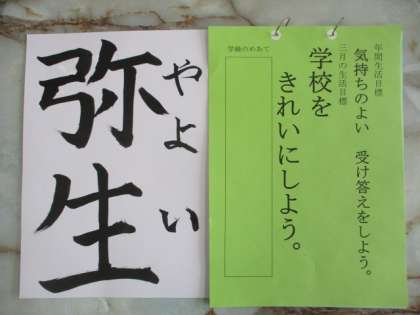 年間生活目標
気持ちのよい　受け答えをしよう。
三月の生活目標
学校を
きれいにしよう。
学級のめあて
弥生
やよい